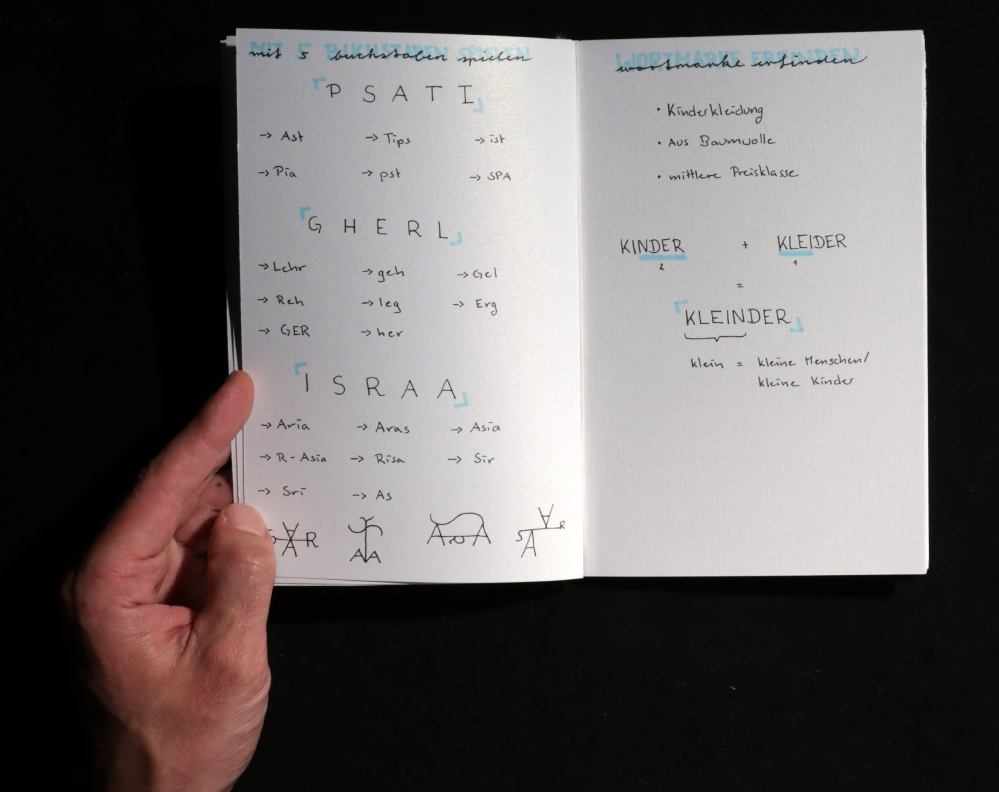 mit 5 buchstaben spielen
P S A T I
→ Ast → Tips → ist
→ Pia → pst → SPA
G H E R L
→ Lehr → geh → Gel
→ Reh → leg → Erg
→ GER → her
I S R A A
→ Aria → Aras → Asia
→ R-Asia → Risa → Sir
→ Sri → As
wortmarke erfinden
• Kinderkleidung
• Aus Baumwolle
• mittlere Preisklasse
KINDER + KLEIDER
2 1
=
KLEINDER
klein = kleine Menschen/
kleine Kinder